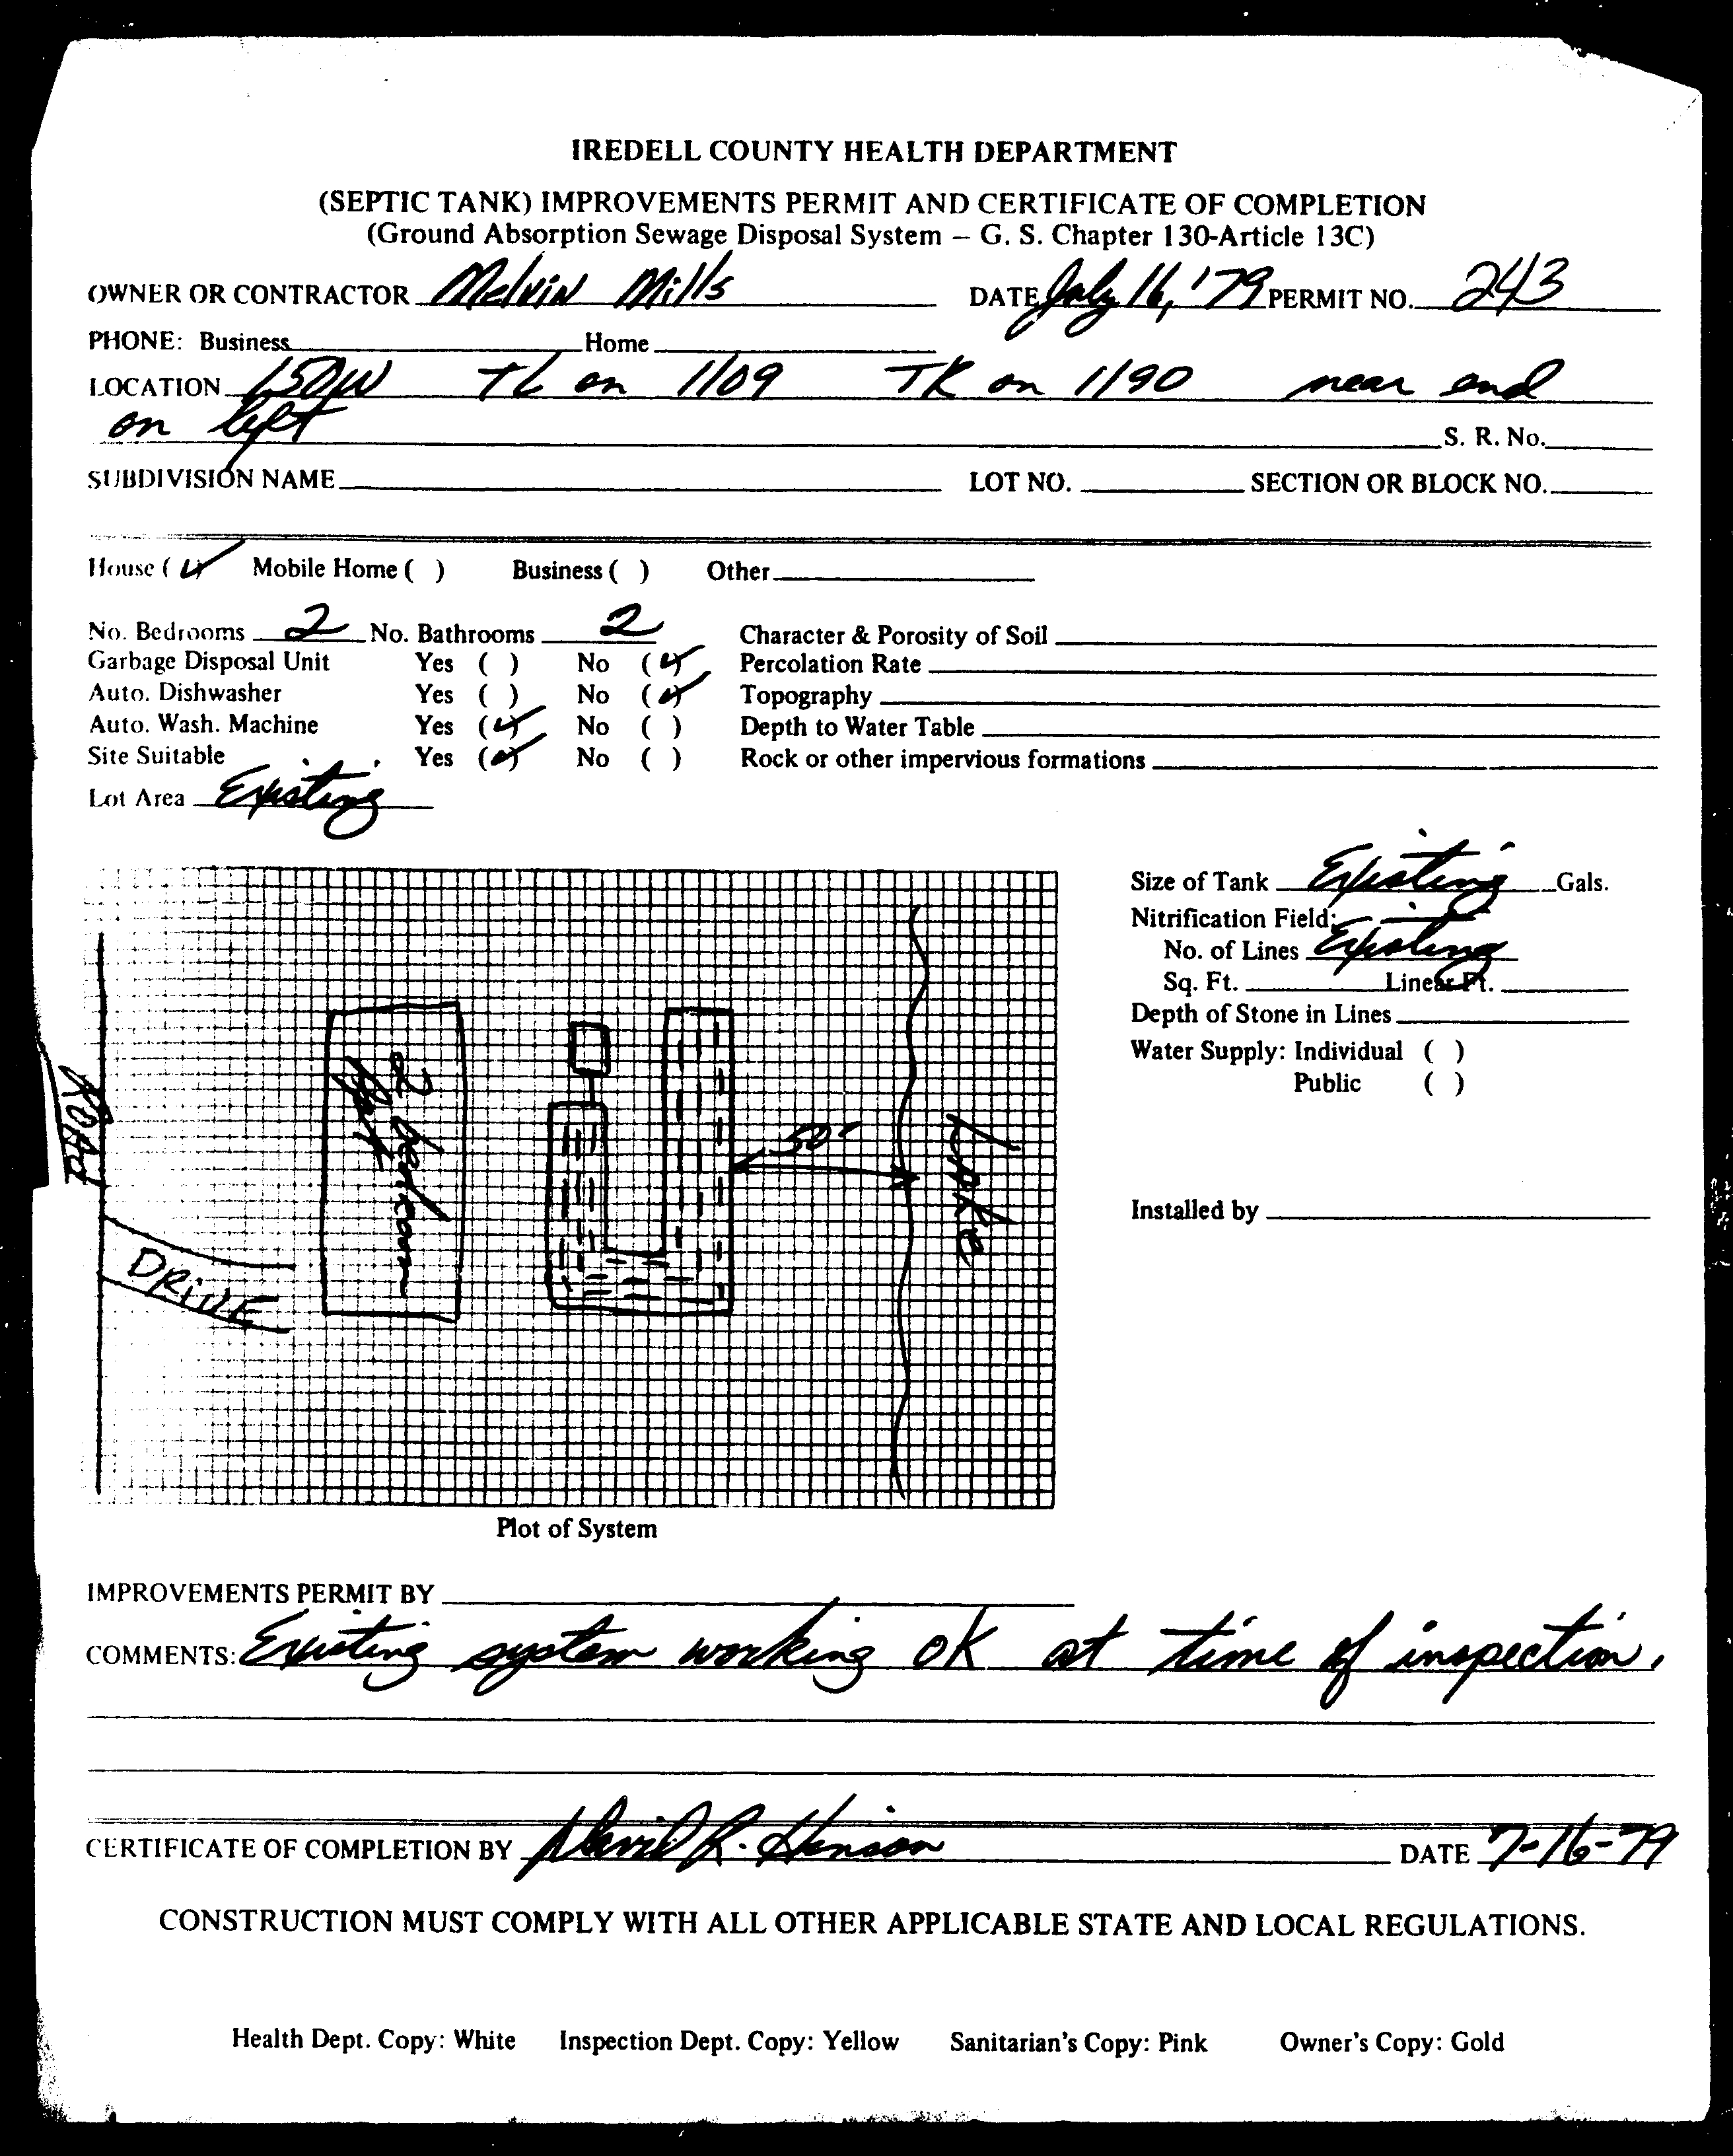 IREDELL COUNTY HEALTH DEPARTMENT
(SEPTIC TANK) IMPROVEMENTS PERMIT AND CERTIFICATE OF COMPLETION
(Ground Absorption Sewage Disposal System – G. S. Chapter 130-Article 13C)
OWNER OR CONTRACTOR Melvin Mills DATE July 16, '79 PERMIT NO. 243
PHONE: Business Home
LOCATION 150W TL on 1109 TR on 1190 near end
on left S. R. No.
SUBDIVISION NAME LOT NO. SECTION OR BLOCK NO.
House (✓) Mobile Home ( ) Business ( ) Other
No. Bedrooms 2 No. Bathrooms 2 Character & Porosity of Soil
Garbage Disposal Unit Yes ( ) No (✓) Percolation Rate
Auto. Dishwasher Yes ( ) No (✓) Topography
Auto. Wash. Machine Yes (✓) No ( ) Depth to Water Table
Site Suitable Yes (✓) No ( ) Rock or other impervious formations
Lot Area Existing
Size of Tank Existing Gals.
Nitrification Field:
No. of Lines Existing
Sq. Ft. Linear Ft.
Depth of Stone in Lines
Water Supply: Individual ( )
Public ( )
Installed by
ROAD
DRIVE
2 bedroom
50'
Lake
Plot of System
IMPROVEMENTS PERMIT BY
COMMENTS: Existing system working OK at time of inspection.
CERTIFICATE OF COMPLETION BY David R. Henson DATE 7-16-79
CONSTRUCTION MUST COMPLY WITH ALL OTHER APPLICABLE STATE AND LOCAL REGULATIONS.
Health Dept. Copy: White Inspection Dept. Copy: Yellow Sanitarian's Copy: Pink Owner's Copy: Gold